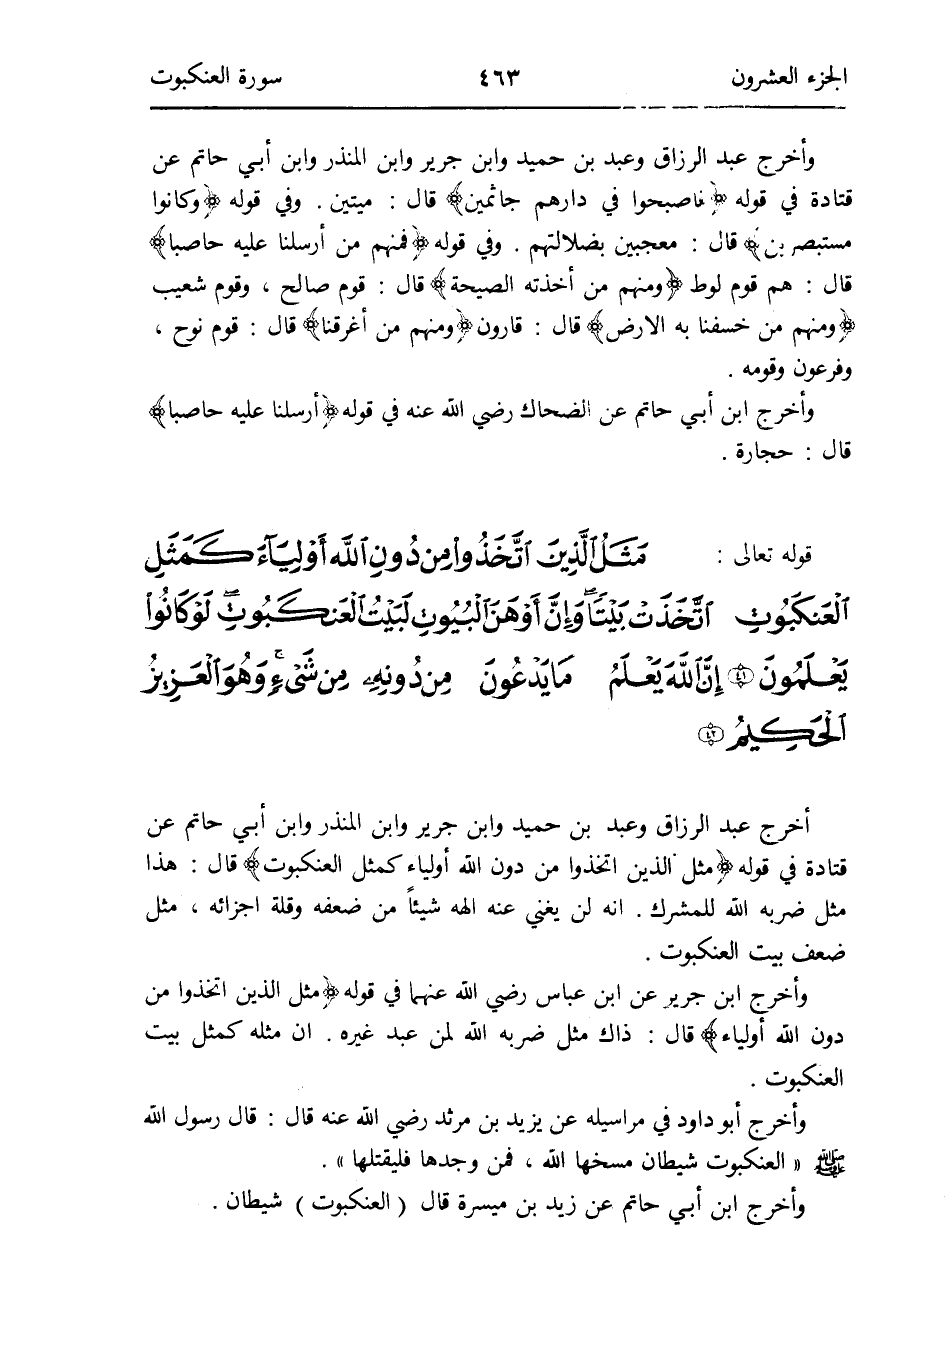 الجزء العشرون ٤٦٣ سورة العنكبوت
وأخرج عبد الرزاق وعبد بن حميد وابن جرير وابن المنذر وابن أبي حاتم عن
قتادة في قوله ﴿فاصبحوا في دارهم جاثمين﴾ قال : ميتين . وفي قوله ﴿وكانوا
مستبصرين﴾ قال : معجبين بضلالتهم . وفي قوله ﴿فمنهم من أرسلنا عليه حاصبا﴾
قال : هم قوم لوط ﴿ومنهم من أخذته الصيحة﴾ قال : قوم صالح ، وقوم شعيب
﴿ومنهم من خسفنا به الارض﴾ قال : قارون ﴿ومنهم من أغرقنا﴾ قال : قوم نوح ،
وفرعون وقومه .
وأخرج ابن أبي حاتم عن الضحاك رضي الله عنه في قوله ﴿أرسلنا عليه حاصبا﴾
قال : حجارة .
قوله تعالى : مَثَلُ ٱلَّذِينَ ٱتَّخَذُوا۟ مِن دُونِ ٱللَّهِ أَوْلِيَآءَ كَمَثَلِ
ٱلْعَنكَبُوتِ ٱتَّخَذَتْ بَيْتًا ۖ وَإِنَّ أَوْهَنَ ٱلْبُيُوتِ لَبَيْتُ ٱلْعَنكَبُوتِ ۖ لَوْ كَانُوا۟
يَعْلَمُونَ ﴿٤١﴾ إِنَّ ٱللَّهَ يَعْلَمُ مَا يَدْعُونَ مِن دُونِهِۦ مِن شَىْءٍ ۚ وَهُوَ ٱلْعَزِيزُ
ٱلْحَكِيمُ ﴿٤٢﴾
أخرج عبد الرزاق وعبد بن حميد وابن جرير وابن المنذر وابن أبي حاتم عن
قتادة في قوله ﴿مثل الذين اتخذوا من دون الله أولياء كمثل العنكبوت﴾ قال : هذا
مثل ضربه الله للمشرك . انه لن يغني عنه الهه شيئاً من ضعفه وقلة اجزائه ، مثل
ضعف بيت العنكبوت .
وأخرج ابن جرير عن ابن عباس رضي الله عنهما في قوله ﴿مثل الذين اتخذوا من
دون الله أولياء﴾ قال : ذاك مثل ضربه الله لمن عبد غيره . ان مثله كمثل بيت
العنكبوت .
وأخرج أبو داود في مراسيله عن يزيد بن مرثد رضي الله عنه قال : قال رسول الله
ﷺ « العنكبوت شيطان مسخها الله ، فمن وجدها فليقتلها » .
وأخرج ابن أبي حاتم عن زيد بن ميسرة قال ( العنكبوت ) شيطان .